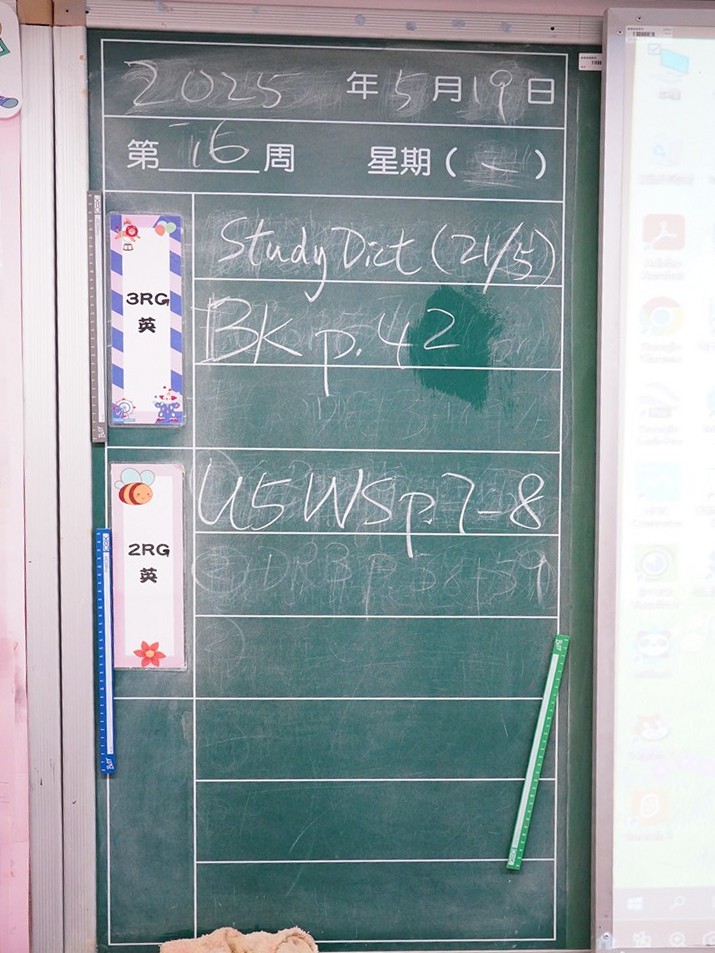 2025 年 5 月 19 日
第 16 周 星期 ( 一 )
3RG
英
Study Dict (21/5)
BK p. 42
2RG
英
U5 WS p. 7-8